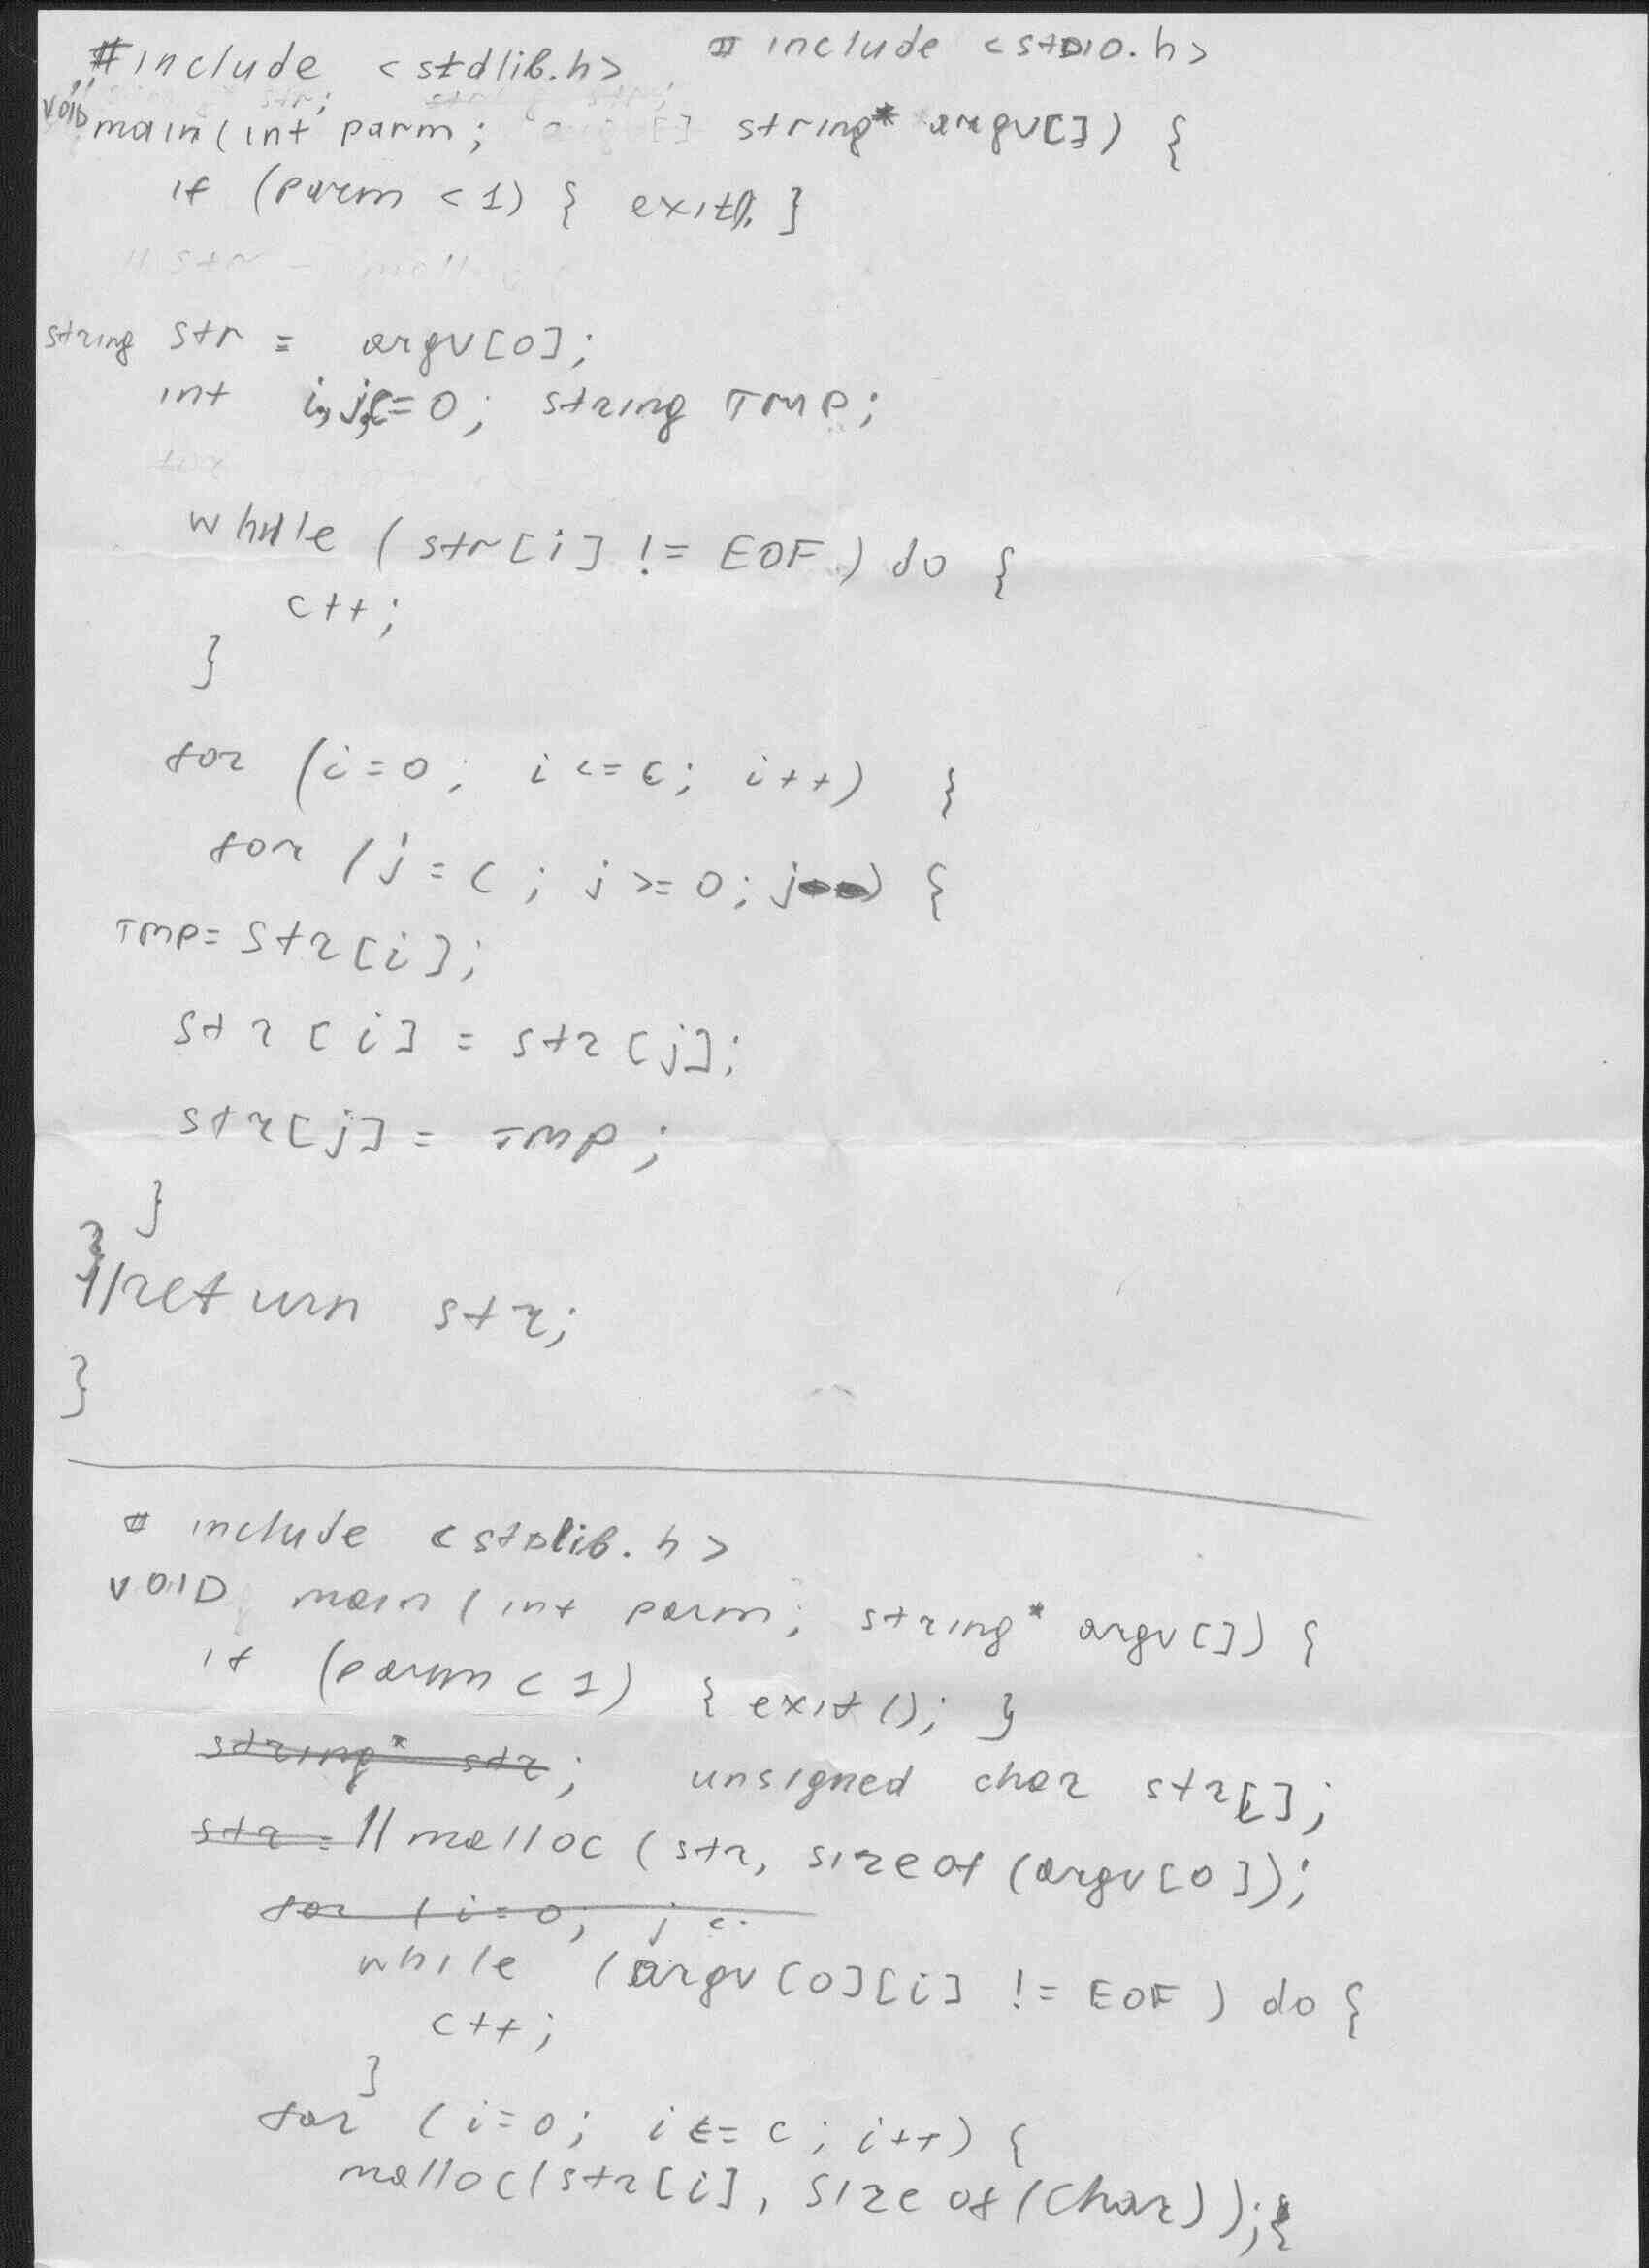 #include <stdlib.h> # include <stDIO.h>
void main(int parm; string* argv[]) {
if (parm < 1) { exit(); }
string str = argv[0];
int i, j, c=0; string TMP;
while (str[i] != EOF) do {
c++;
}
for (i=0; i <= c; i++) {
for (j = c; j >= 0; j--) {
TMP= str[i];
str[i] = str[j];
str[j] = TMP;
}
}
//return str;
}
# include <stDlib.h>
VOID main(int parm; string* argv[]) {
if (parm < 1) { exit(); }
string* str; unsigned char str[];
str = // malloc (str, sizeof (argv[0]);
for (i=0; j <
while (argv[0][i] != EOF) do {
c++;
}
for (i=0; i <= c; i++) {
malloc(str[i], sizeof(char));}